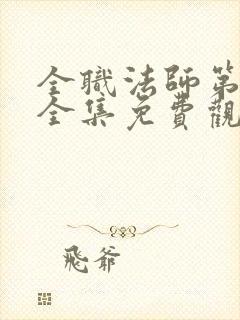 全職法師第
全集免費觀
飛爺